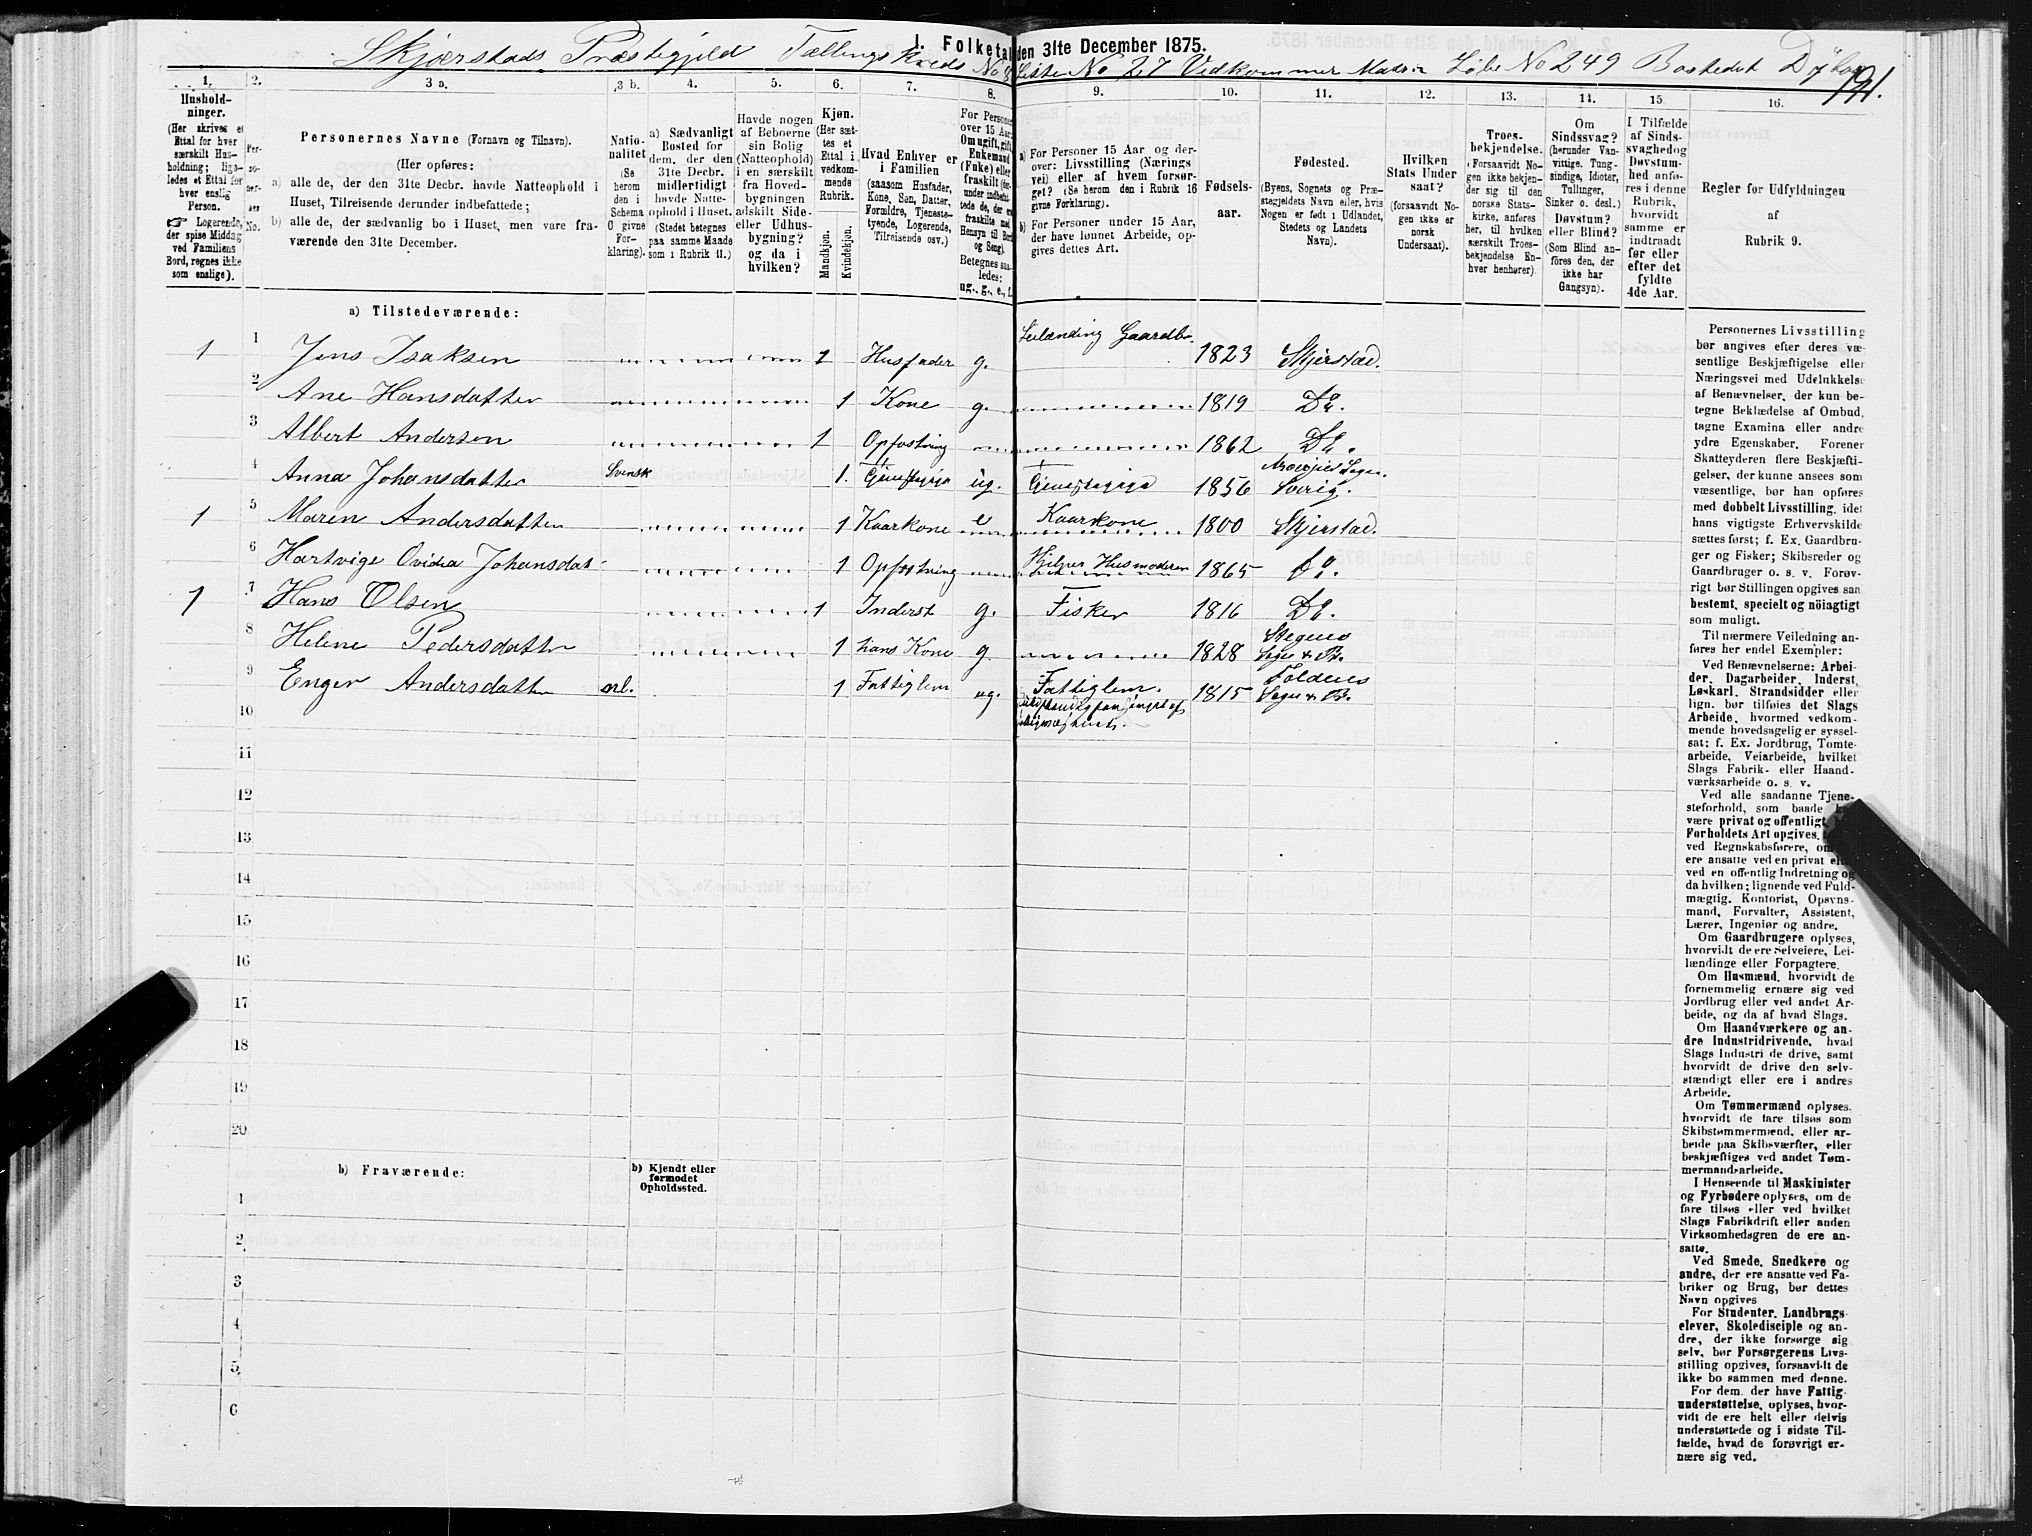 I. Folketal den 31te December 1875.
Skjærstads Præstegjeld Tællings Kreds No 8 Liste No 27 Vedkommer Matri Løbe No 249 Bostedet
191.
1. 2. 3 a. 3 b. 4. 5. 6. 7. 8. 9. 10. 11. 12. 13. 14. 15. 16.
Hushold-
ninger.
(Her skrives et
Ettal for hver
særskilt Hus-
holdning; lige-
ledes et Ettal for
hver enslig
Person.
☞ Logerende,
der spise Middag
ved Familiens
Bord, regnes ikke
som enslige).
Per-
so-
ner-
nes
No.
Personernes Navne (Fornavn og Tilnavn).
(Her opføres:
a) alle de, der den 31te Decbr. havde Natteophold i
Huset, Tilreisende derunder indbefattede;
b) alle de, der sædvanlig bo i Huset, men vare fra-
værende den 31te December.
Natio-
nalitet
(Se
herom
den i
Schema
O givne
For-
klaring).
a) Sædvanligt
Bosted for
dem, der den
31te Decbr.
midlertidigt
havde Natte-
ophold i Huset.
(Stedet betegnes
paa samme Maade
som i Rubrik 11.)
Havde nogen
af Beboerne
sin Bolig
(Natteophold)
i en særskilt
fra Hoved-
bygningen
adskilt Side-
eller Udhus-
bygning?
og da i
hvilken?
Kjøn.
(Her sæt-
tes et
Ettal i
vedkom-
mende
Rubrik.
Mandkjøn.
Kvindekjøn.
Hvad Enhver er
i Familien
(saasom Husfader,
Kone, Søn, Datter,
Forældre, Tjeneste-
tyende, Logerende,
Tilreisende osv.)
For Personer
over 15 Aar:
Om ugift, gift,
Enkemand
(Enke) eller
fraskilt (der-
under indbefat-
tede de, der ere
fraskilte med
Hensyn til Bord
og Seng).
Betegnes saa-
ledes:
ug., g., e., f.
a) For Personer 15 Aar og der-
over: Livsstilling (Nærings-
vei) eller af hvem forsør-
get? (Se herom den i Rubrik 16
givne Forklaring).
b) For Personer under 15 Aar,
der have lønnet Arbeide, op-
gives dettes Art.
Fødsels-
aar.
Fødested.
(Byens, Sognets og Præ-
stegjeldets Navn eller, hvis
Nogen er født i Udlandet,
Stedets og Landets
Navn).
Hvilken
Stats Under-
saat?
(forsaavidt No-
gen ikke er
norsk
Undersaat).
Troes-
bekjendelse.
(Forsaavidt No-
gen ikke bekjen-
der sig til den
norske Stats-
kirke, anføres
her, til hvilken
særskilt Troes-
bekjendelse En-
hver henhører).
Om
Sindssvag?
(herunder Van-
vittige, Tung-
sindige, Idioter,
Tullinger,
Sinker o. desl.)
Døvstum?
eller Blind?
(Som Blind an-
føres den, der
ikke har
Gangsyn).
I Tilfælde
af Sinds-
svaghed og
Døvstum-
hed anfø-
res i denne
Rubrik,
hvorvidt
samme er
indtraadt
før eller
efter det
fyldte
4de Aar.
Regler for Udfyldningen
af
Rubrik 9.
a) Tilstedeværende:
1 1 Jens Isaksen 1 Husfader g. Leilænding Gaardbr. 1823 Skjerstad.
2 Ane Hansdatter 1 Kone g. 1819 Do.
3 Albert Andersen 1 Opfostring 1862 Do.
4 Anna Johansdatter Svensk 1. Tjenestepige ug. Tjenestepige 1856 Sverig.
1 5 Maren Andersdatter 1 Kaarkone e Kaarkone 1800 Skjerstad.
6 Hartvige Ovidia Johansdat 1 Opfostring Hjelper Husmoderen 1865 Do.
1 7 Hans Olsen 1 Inderst g. Fisker 1816 Do.
8 Helene Pedersdatter 1 hans Kone g. 1828 Stegens Sogn & Pr.
9 Enger Andersdatter nl. 1 Fattiglem ug. Fattiglem. 1815 Foldens Sogn & Pr.
10
11
12
13
14
15
16
17
18
19
20
b) Fraværende:
b) Kjendt eller
formodet
Opholdssted.
1
2
3
4
5
6
Personernes Livsstilling
bør angives efter deres væ-
sentlige Beskjæftigelse eller
Næringsvei med Udelukkelse
af Benævnelser, der kun be-
tegne Beklædelse af Ombud,
tagne Examina eller andre
ydre Egenskaber. Forener
Skatteyderen flere Beskjæfti-
gelser, der kunne ansees som
væsentlige, bør han opføres
med dobbelt Livsstilling, idet
hans vigtigste Erhvervskilde
sættes først; f. Ex. Gaardbru-
ger og Fisker; Skibsreder og
Gaardbruger o. s. v. Forøv-
rigt bør Stillingen opgives saa
bestemt, specielt og nöiagtigt
som muligt.
Til nærmere Veiledning an-
føres her endel Exempler:
Ved Benævnelserne: Arbei-
der, Dagarbeider, Inderst,
Løskarl, Strandsidder eller
lign. bør tilføies det Slags
Arbeide, hvormed vedkom-
mende hovedsagelig er syssel-
sat; f. Ex. Jordbrug, Tomte-
arbeide, Veiarbeide, hvilket
Slags Fabrik- eller Haand-
værksarbeide o. s. v.
Ved alle saadanne Tjene-
steforhold, som baade kan
være privat og offentligt,
Forholdets Art opgives,
ved Regnskabsførere, om
ere ansatte ved en privat eller
ved en offentlig Indretning og
da hvilken; lignende ved Fuld-
mægtig, Kontorist, Opsyns-
mand, Forvalter, Assistent,
Lærer, Ingeniør og andre.
Om Gaardbrugere oplyses,
hvorvidt de ere Selveiere, Lei-
lændinge eller Forpagtere.
Om Husmænd, hvorvidt de
fornemmelig ernære sig ved
Jordbrug eller ved andet Ar-
beide, og da af hvad Slags.
Om Haandværkere og an-
dre Industridrivende, hvad
Slags Industri de drive, samt
hvorvidt de drive den selv-
stændigt eller ere i andres
Arbeide.
Om Tømmermænd oplyses,
hvorvidt de fare tilsøs som
Skibstømmermænd, eller ar-
beide paa Skibsværfter, eller
beskjæftiges ved andet Tøm-
mermandsarbeide.
I Henseende til Maskinister
og Fyrbødere oplyses, om de
fare tilsøs eller ved hvilket
Slags Fabrikdrift eller anden
Virksomhedsgren de ere an-
satte.
Ved Smede, Snedkere og
andre, der ere ansatte ved Fa-
briker og Brug, bør dettes
Navn opgives
For Studenter, Landbrugs-
elever, Skoledisciple og an-
dre, der ikke forsørge sig
selv, bør Forsørgerens Livs-
stilling opgives, forsaavidt de
ikke bo sammen med denne.
For dem, der have Fattig-
understøttelse, oplyses, hvor-
vidt de ere helt eller delvis
understøttede og i sidste Til-
fælde, hvad de forøvrigt er-
nære sig ved.